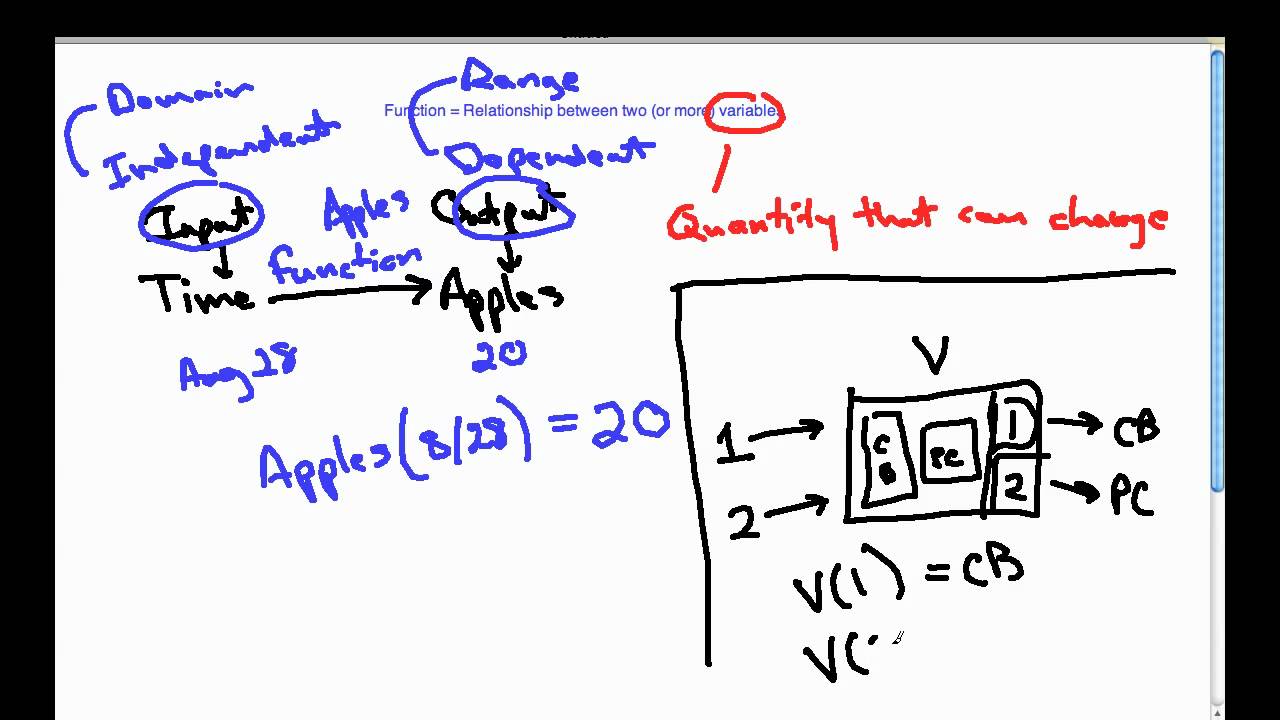 Domain
Range
Function = Relationship between two (or more) variables
Independent
Dependent
Input
Apples
Output
Quantity that can change
function
Time
Apples
Aug 28
20
Apples(8/28) = 20
V
1
CB
PC
1
CB
2
2
PC
V(1) = CB
V(